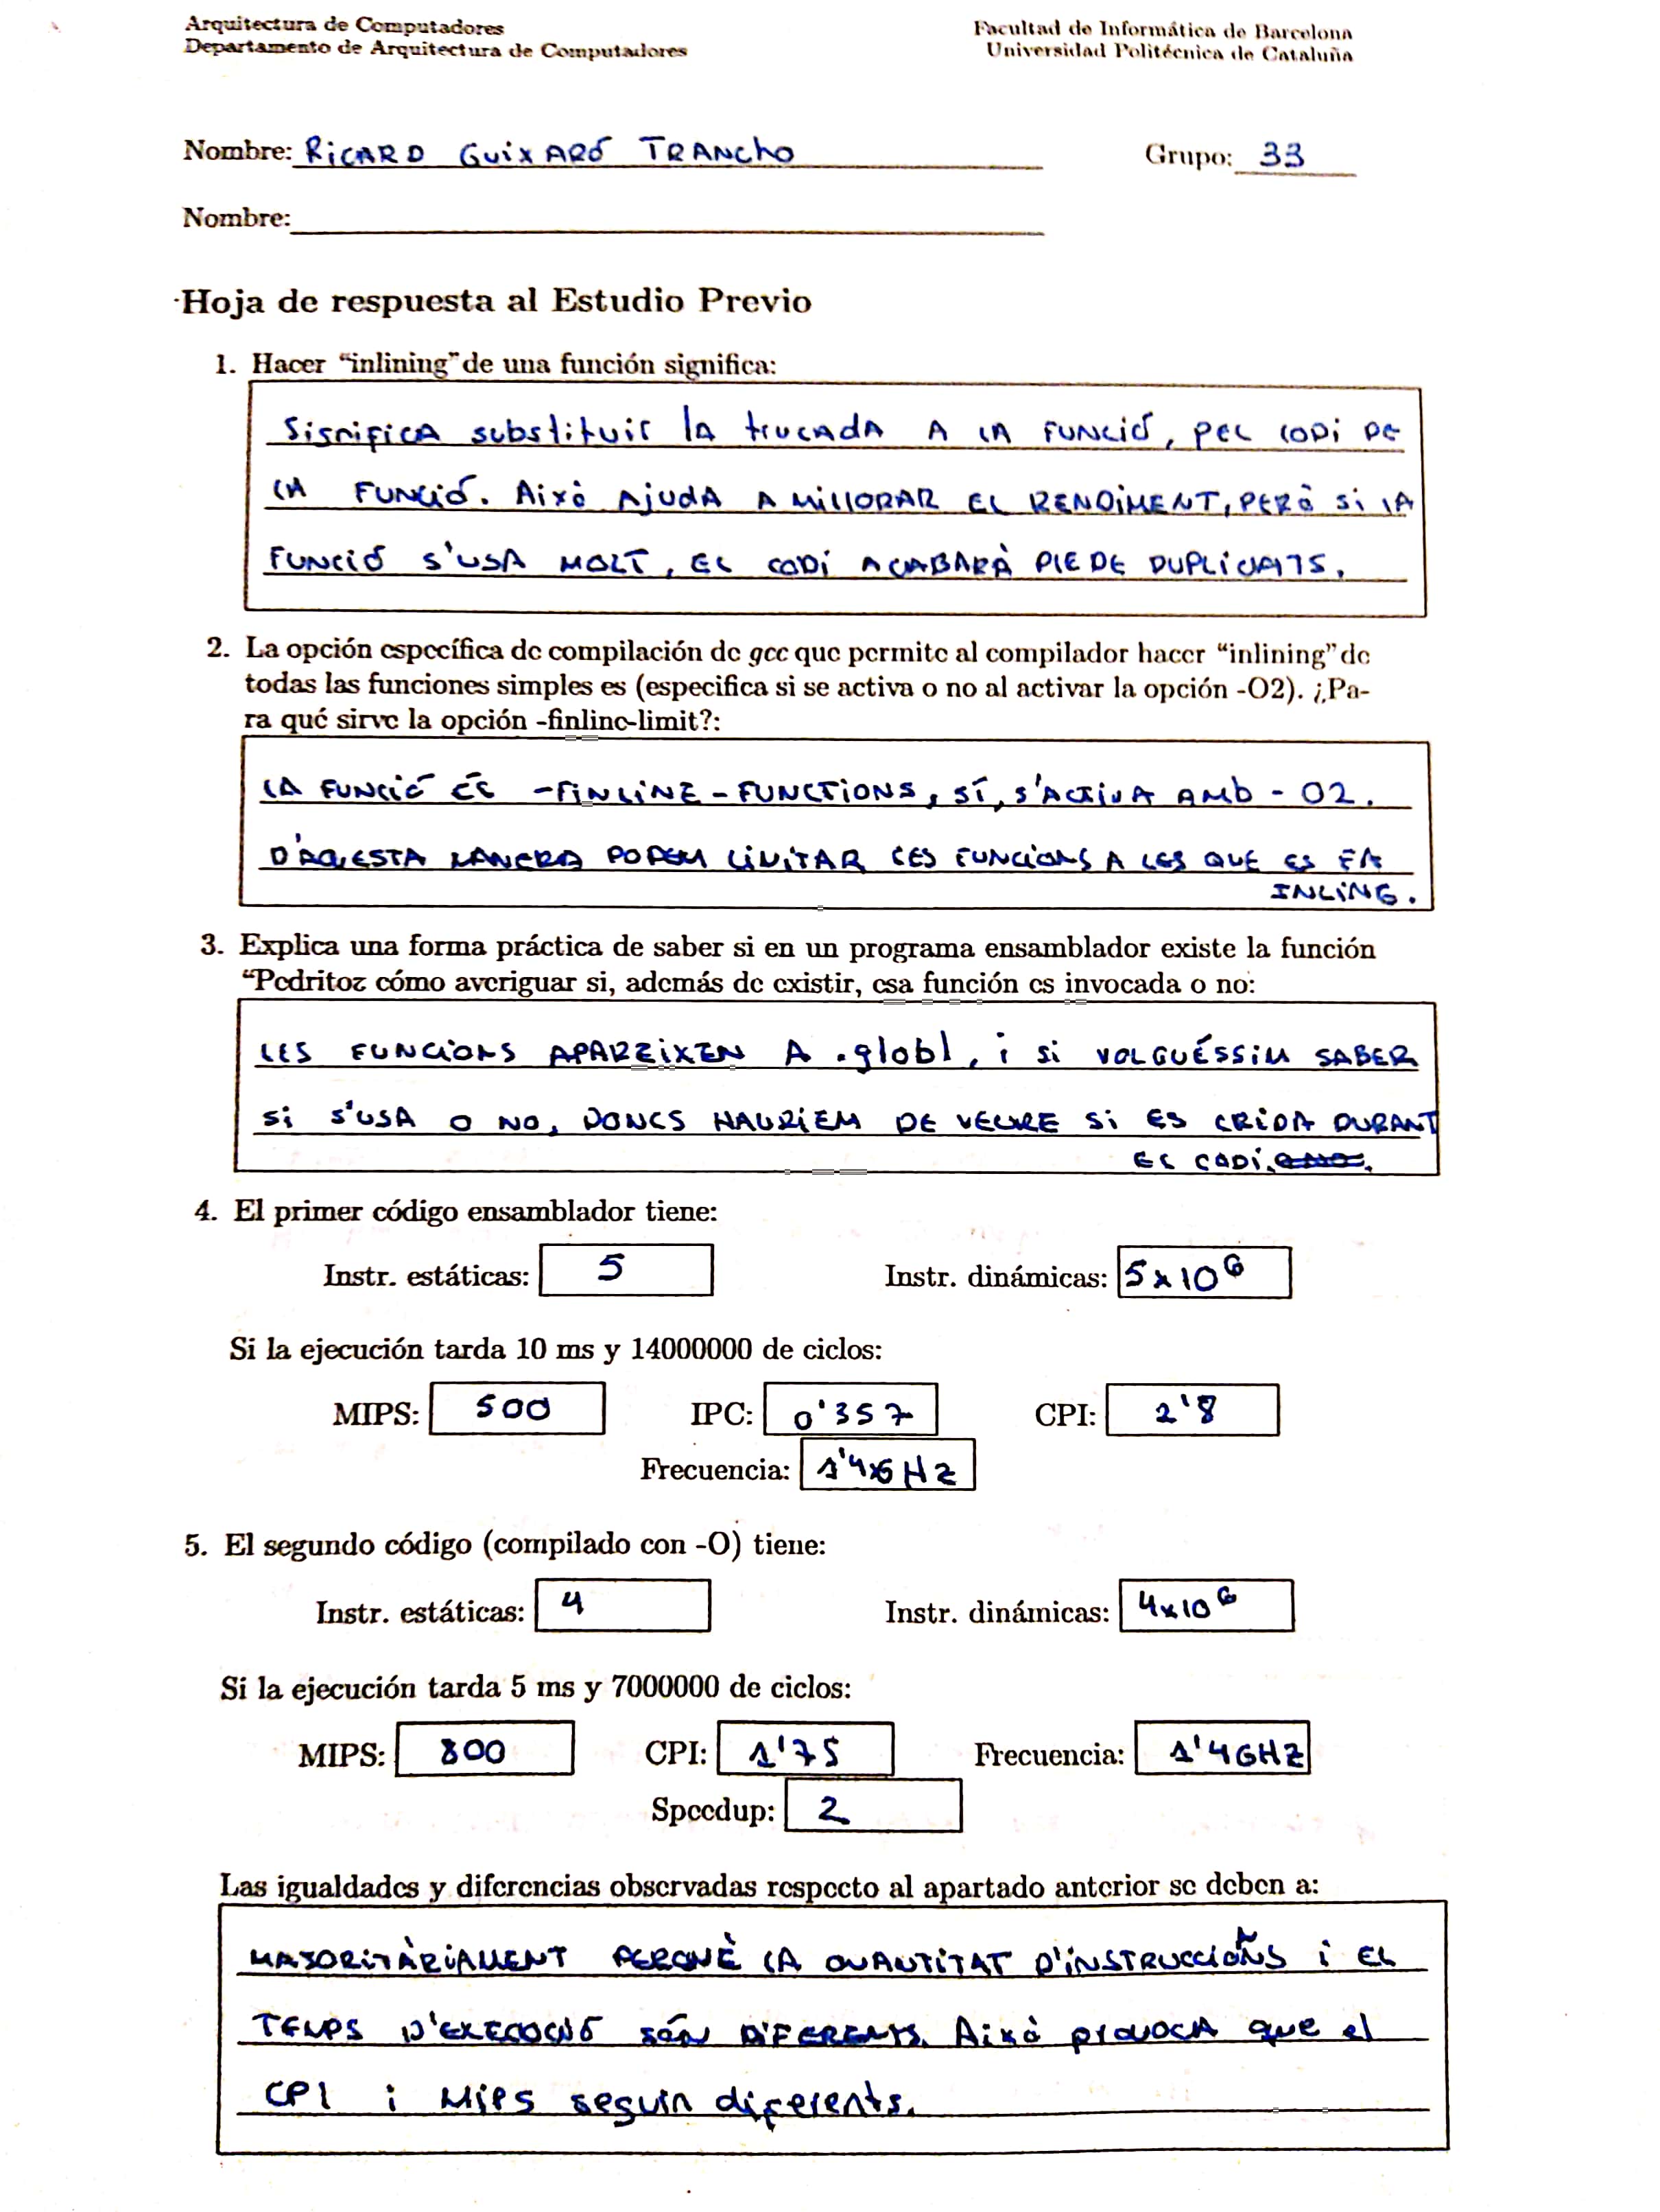 Arquitectura de Computadores
Departamento de Arquitectura de Computadores
Facultad de Informática de Barcelona
Universidad Politécnica de Cataluña
Nombre: RICARD GUIXARÓ TRANCHO Grupo: 33
Nombre:
Hoja de respuesta al Estudio Previo
1. Hacer “inlining” de una función significa:
SIGNIFICA substituir la trucada A LA FUNCIÓ, PEL CODI DE
LA FUNCIÓ. Això AJUDA A MILLORAR EL RENDIMENT, PERÒ SI LA
FUNCIÓ S'USA MOLT, EL CODI ACABARÀ PLE DE DUPLICATS.
2. La opción específica de compilación de gcc que permite al compilador hacer “inlining” de
todas las funciones simples es (especifica si se activa o no al activar la opción -O2). ¿Pa-
ra qué sirve la opción -finline-limit?:
LA FUNCIÓ ÉS -FINLINE-FUNCTIONS, SÍ, S'ACTIVA AMb -O2.
D'AQUESTA MANERA PODEM LIMITAR LES FUNCIONS A LES QUE ES FA
INLING.
3. Explica una forma práctica de saber si en un programa ensamblador existe la función
“Pedritoz cómo averiguar si, además de existir, esa función es invocada o no:
LES FUNCIONS APAREIXEN A .globl, i si VOLGUÉSSIM SABER
Si S'USA O NO, DONCS HAURIEM DE VEURE Si ES CRIDA DURANT
EL CODI.
4. El primer código ensamblador tiene:
Instr. estáticas: 5 Instr. dinámicas: 5x10^6
Si la ejecución tarda 10 ms y 14000000 de ciclos:
MIPS: 500 IPC: 0'357 CPI: 2'8
Frecuencia: 1'4 GHz
5. El segundo código (compilado con -O) tiene:
Instr. estáticas: 4 Instr. dinámicas: 4x10^6
Si la ejecución tarda 5 ms y 7000000 de ciclos:
MIPS: 800 CPI: 1'75 Frecuencia: 1'4GHZ
Speedup: 2
Las igualdades y diferencias observadas respecto al apartado anterior se deben a:
MAJORITÀRIAMENT PERQUÈ LA QUANTITAT D'INSTRUCCIONS i EL
TEMPS D'EXECUCIÓ SÓN DIFERENTS. Això provoca que el
CPI i MIPS seguin diferents.